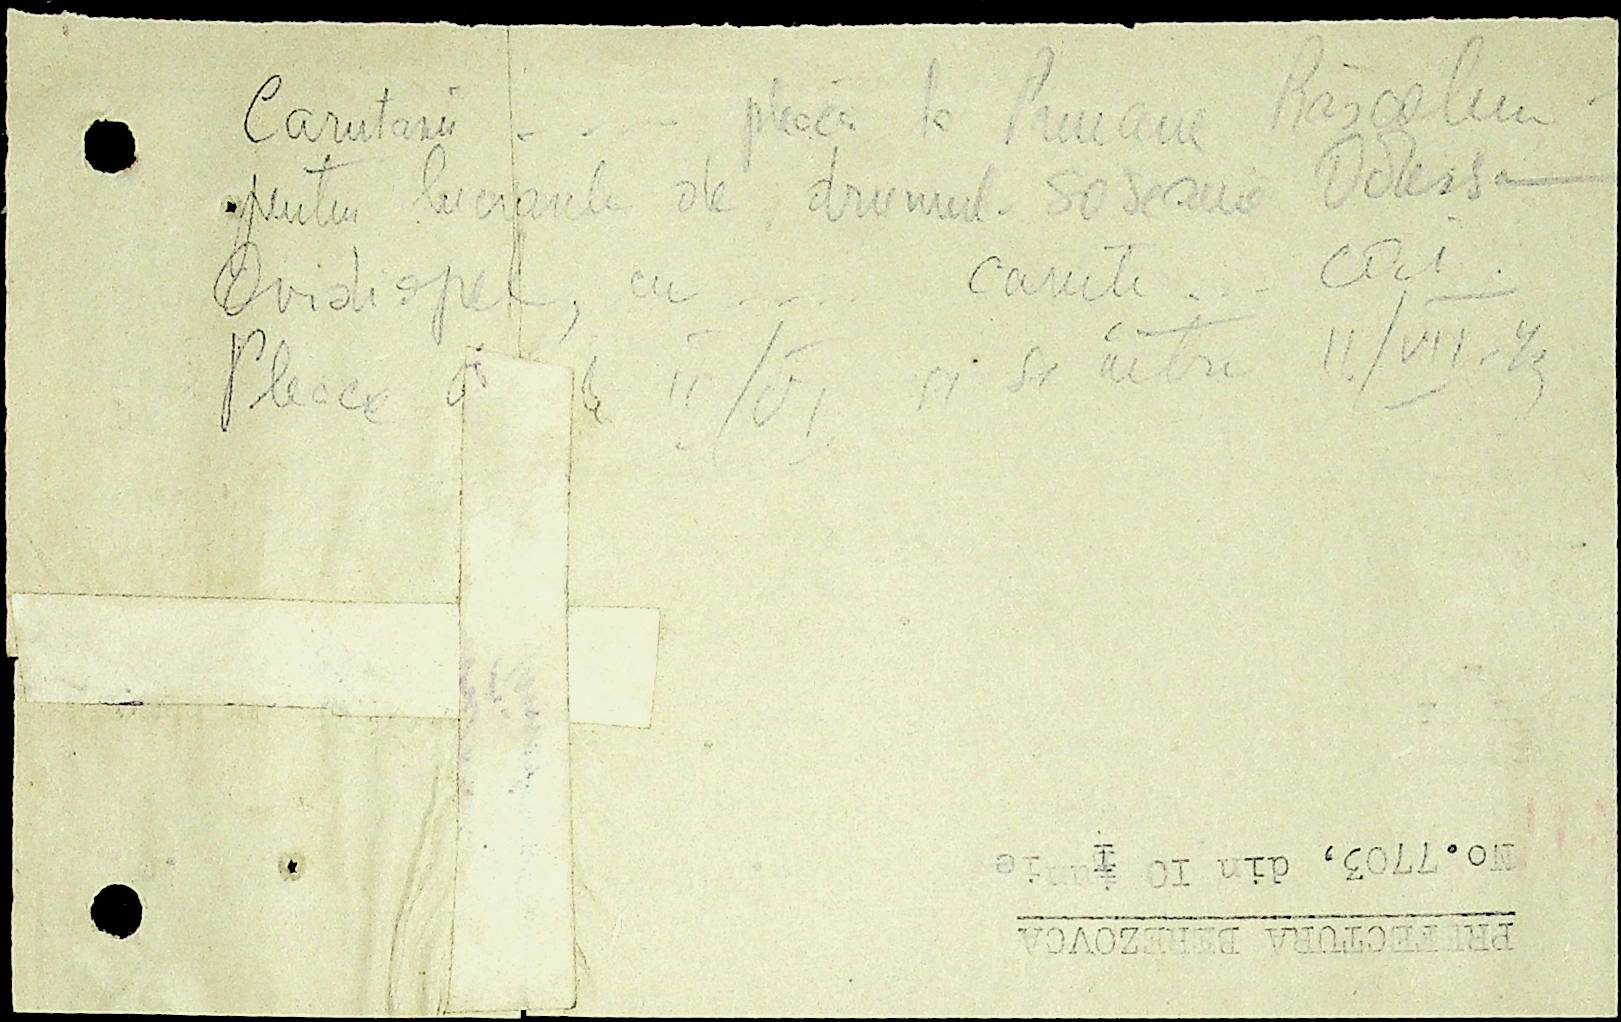 Carutasii - - - - pleacă la
pentru lucrarile de drumul - soseaua Odessa —
Ovidiopol, cu ..... carute ... cai.
Pleaca la 11/VI si se 11/VII.43
PREFECTURA BEREZOVCA
No.7703, din IO Iunie